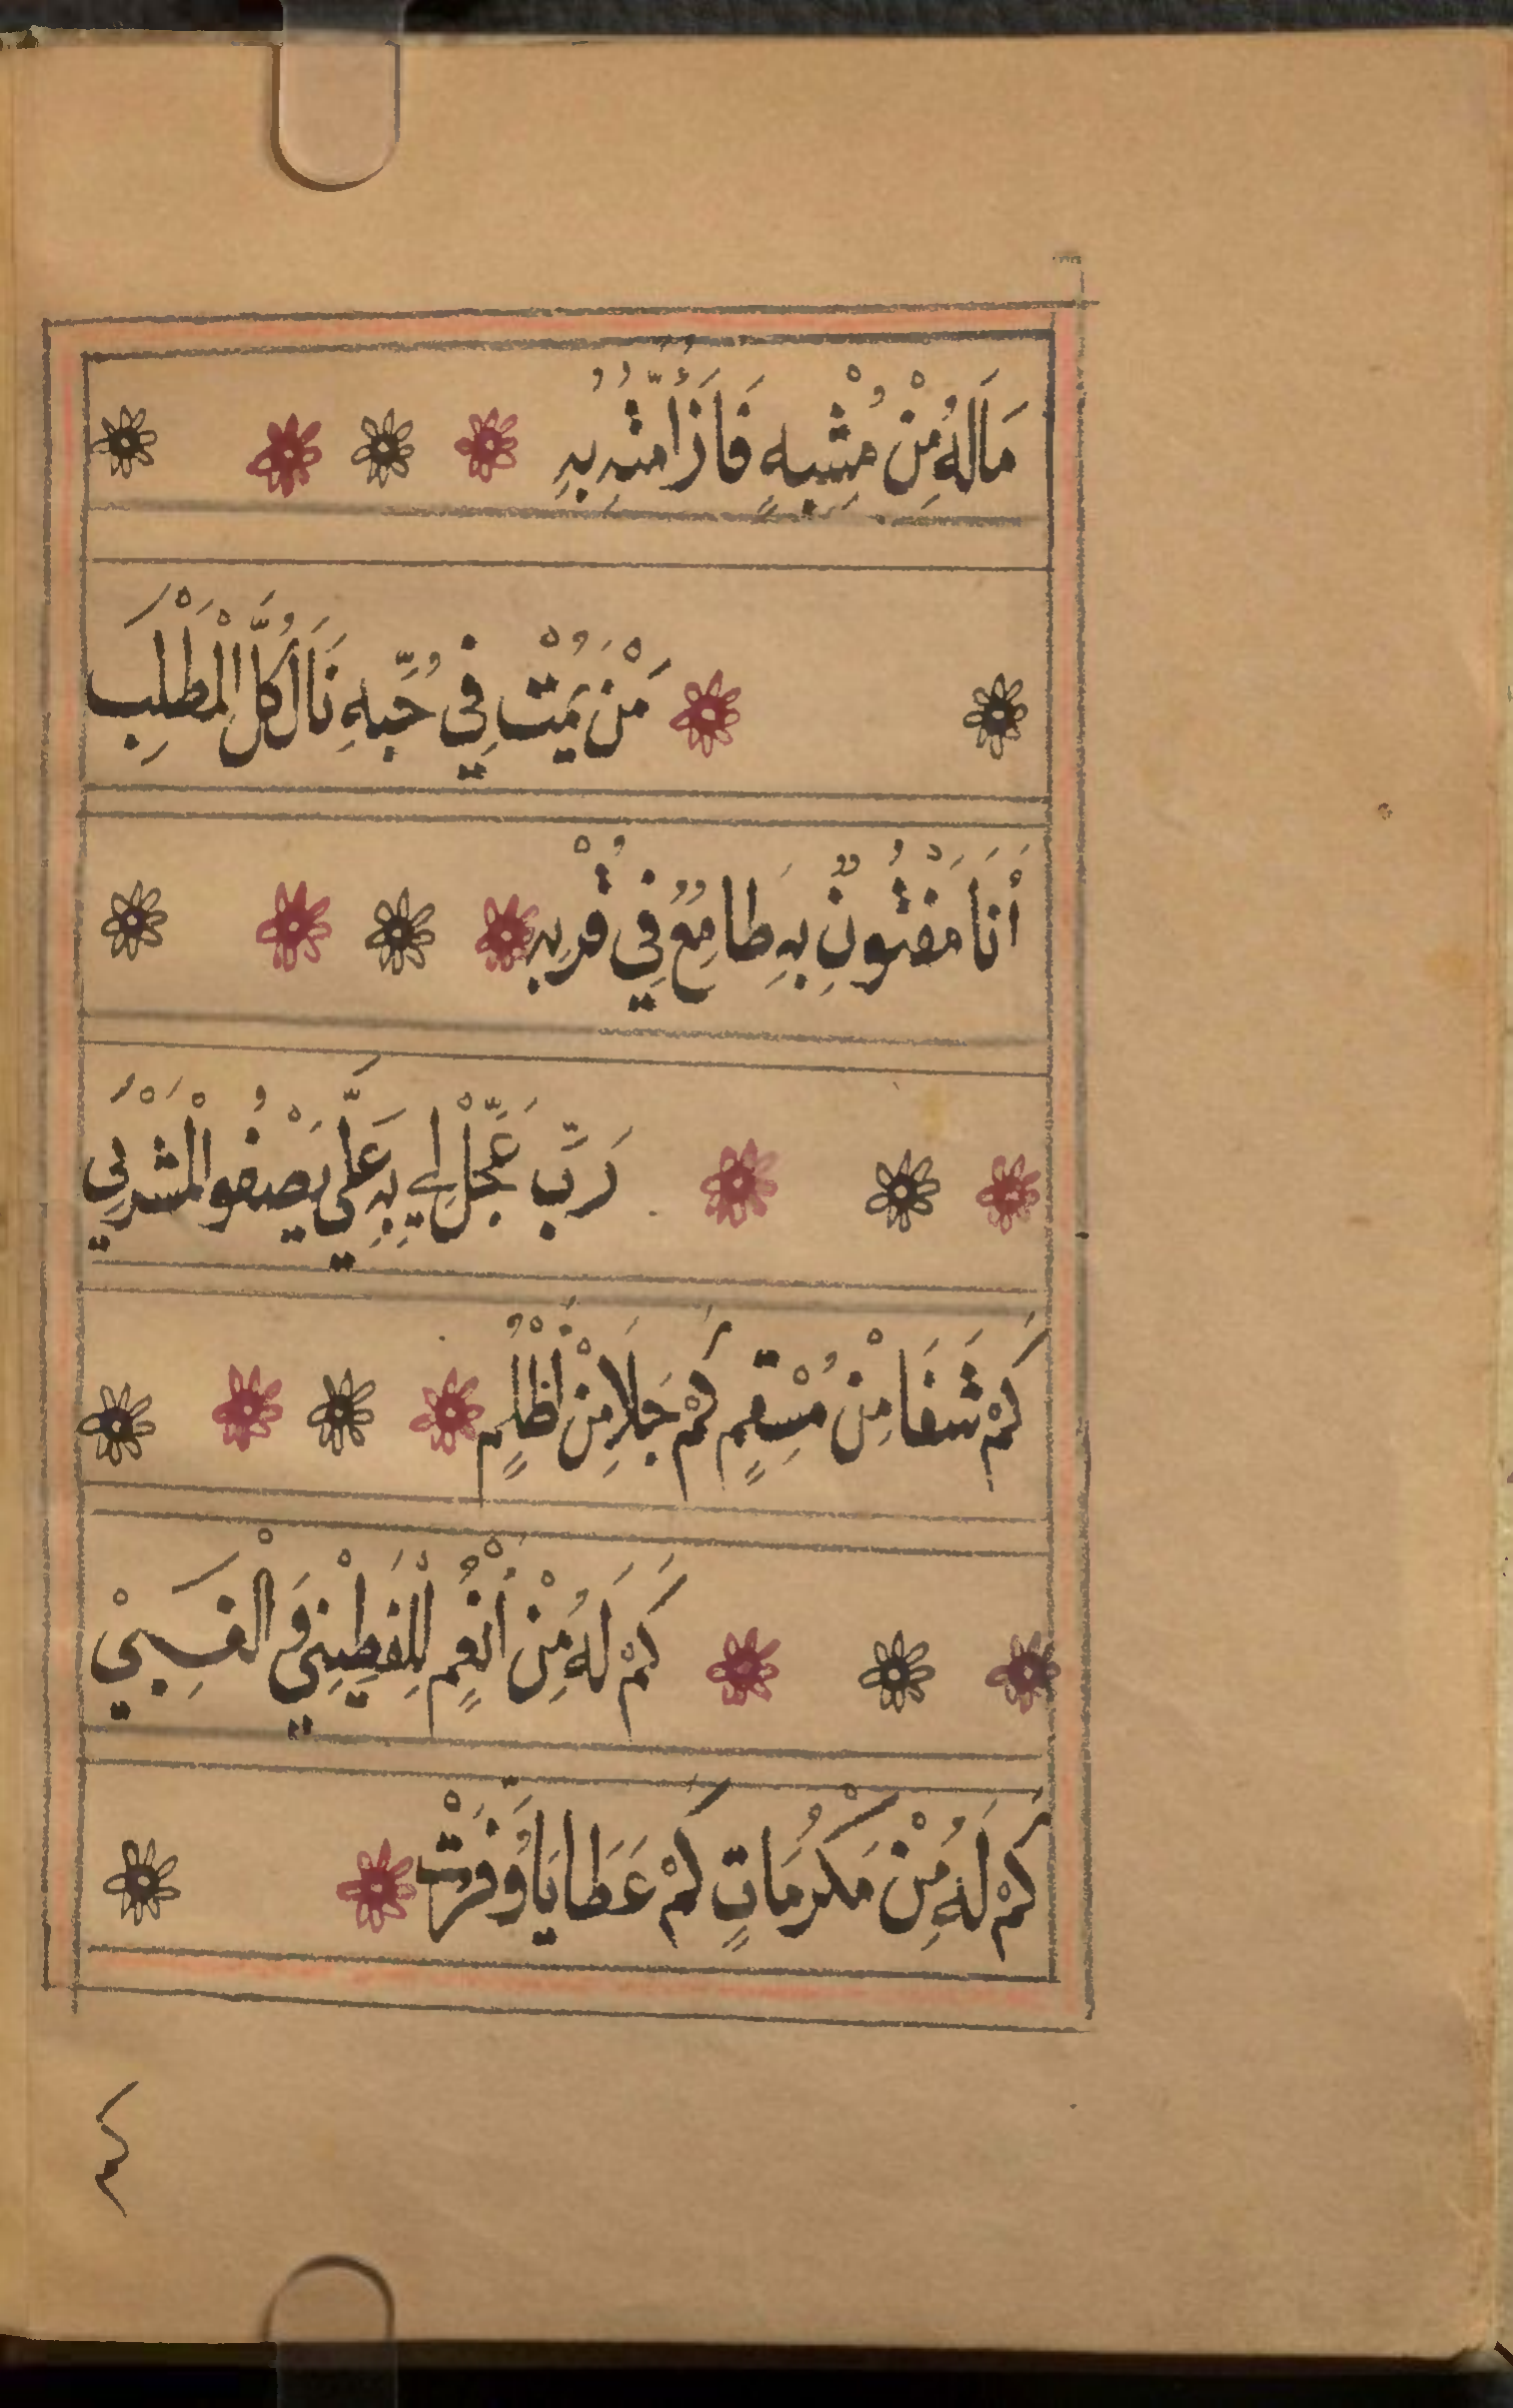 مَالَهُ مِنْ مُشْبِهٍ فَازَ أُمَّتُهُ بِهِ
مَنْ يَمُتْ فِي حُبِّهِ نَالَ كُلَّ الْمَطْلَبِ
أَنَا مَفْتُونٌ بِهِ طَامِعٌ فِي قُرْبِهِ
رَبَّ عَجِّلْ لِي بِهِ عَلَّى يَصْفُو الْمَشْرَبِي
كَمْ شَفَا مِنْ مُسْقِمٍ كَمْ جَلَا مِنْ أَظْلُمٍ
كَمْ لَهُ مِنْ أَنْعُمٍ لِلْفَطِيْنِ وَ الْغَبِيْ
كَمْ لَهُ مِنْ مَكْرُمَاتٍ كَمْ عَطَايَا وُفِّرَتْ
٤